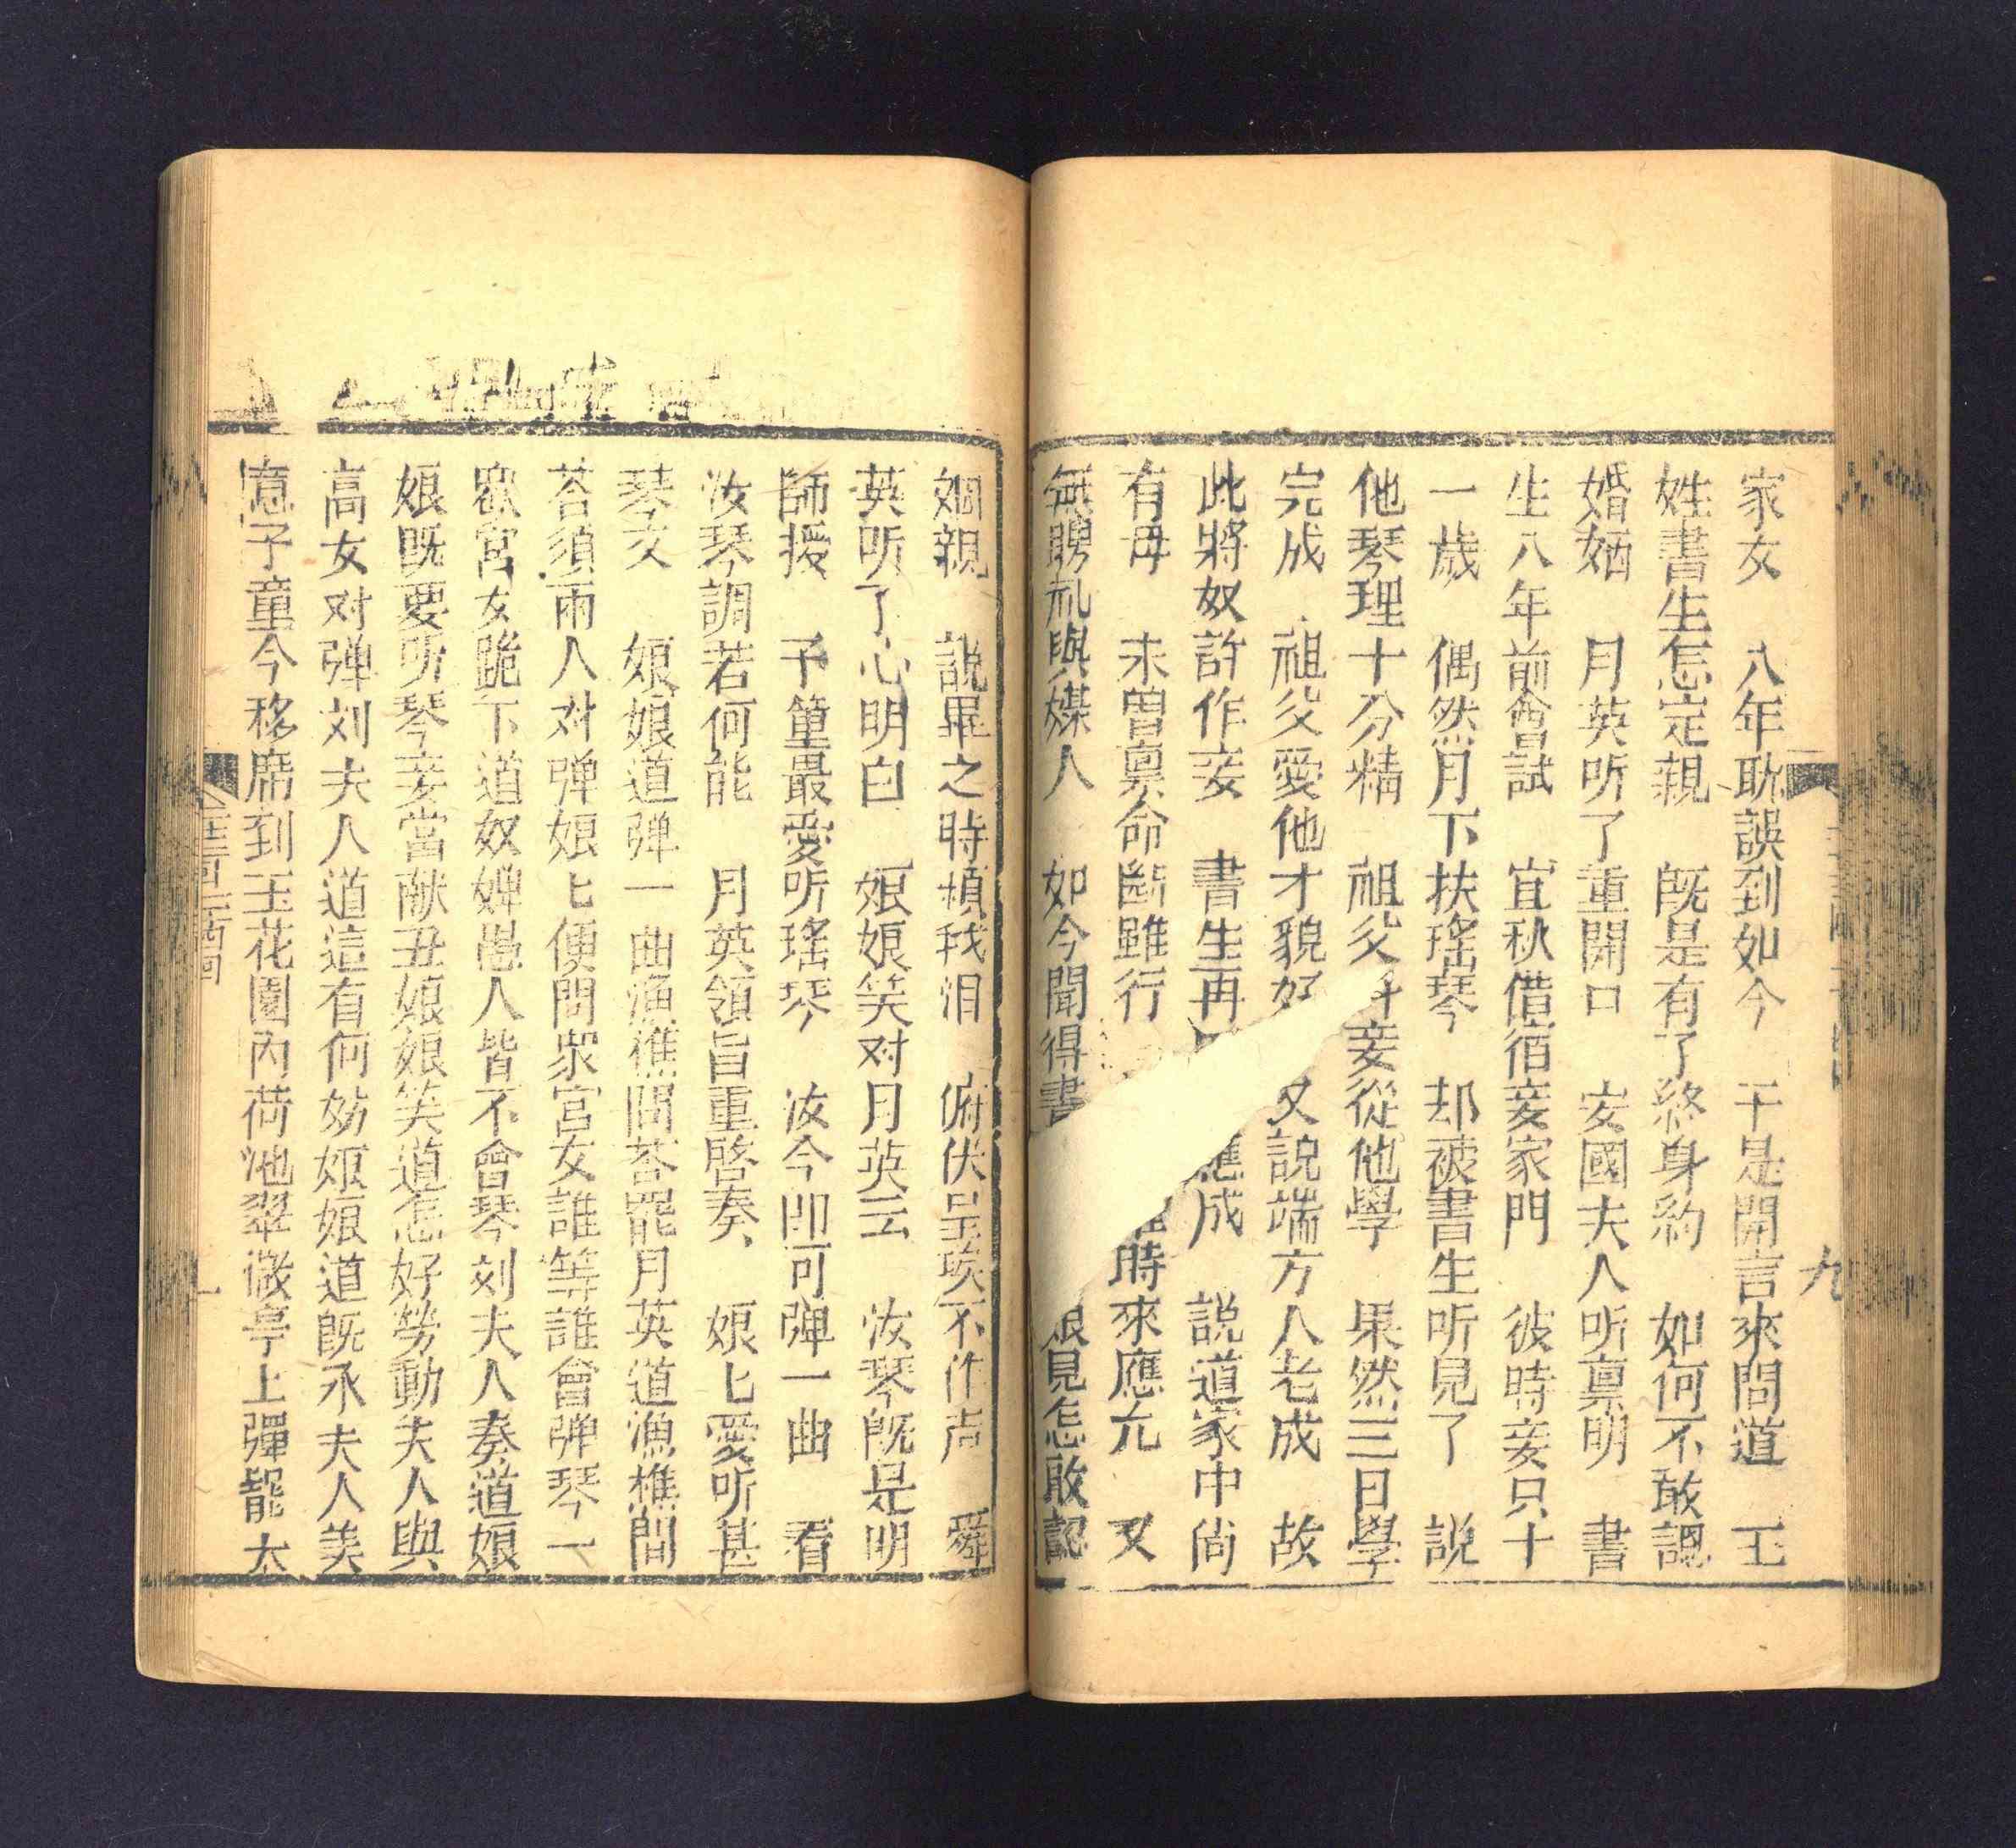 家女　八年耽誤到如今　干是開言來問道　玉
姓書生怎定親　既是有了終身約　如何不敢認
婚姻　月英听了重開口　安國夫人听禀明　書
生八年前會試　宜秋借宿妾家門　彼時妾只十
一歲　偶然月下扶瑤琴　却被書生听見了　説
他琴理十分精　祖父　妾從他學　果然三日學
完成　祖父愛他才貌好　又説端方人老成　故
此將奴許作妾　書生再　應成　説道家中尙
有母　未曾禀命斷雖行　時來應允　又
無聘礼與媒人　如今聞得書　見怎敢認
姻親　説畢之時損我泪　俯伏呈埃不作声　舜
英听了心明白　娘娘笑对月英云　汝琴既是明
師授　子箽最愛听瑤琴　汝今即可弹一曲　看
汝琴調若何能　月英領旨重啓奏　娘匕愛听甚
琴文　娘娘道弹一曲漁樵問荅罷月英道漁樵問
荅須兩人对弹娘匕便問衆宮女誰等誰會弹琴一
衆宮女跪下道奴婢愚人皆不會琴刘夫人奏道娘
娘既要听琴妾當献丑娘娘笑道怎好勞動夫人與
高女对弹刘夫人道這有何妨娘娘道既承夫人美
意子童今移席到玉花園内荷池翠微亭上彈罷太
九